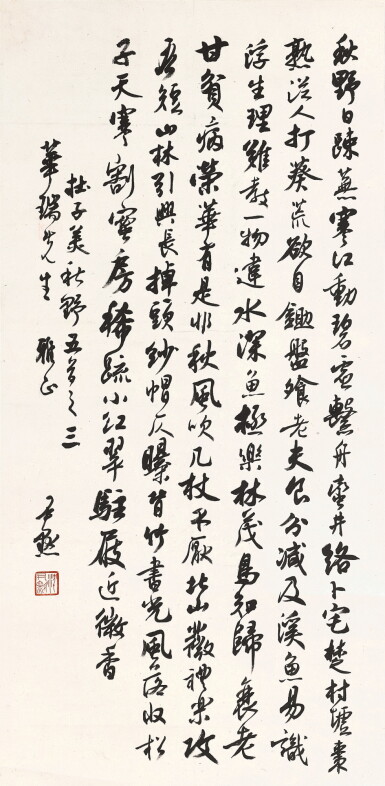 秋野日疎蕪寒江動碧虛繫舟蠻井絡卜宅楚村墟棗
熟從人打葵荒欲自鋤盤飧老夫食分減及溪魚易識
浮生理難教一物違水深魚極樂林茂鳥知歸衰老
甘貧病榮華有是非秋風吹几杖不厭北山薇禮樂攻
吾短山林引興長掉頭紗帽仄曝背竹書光風落收松
子天寒割蜜房稀疏小紅翠駐屐近微香
杜子美秋野五首之三
華瑞先生 雅正
尹默